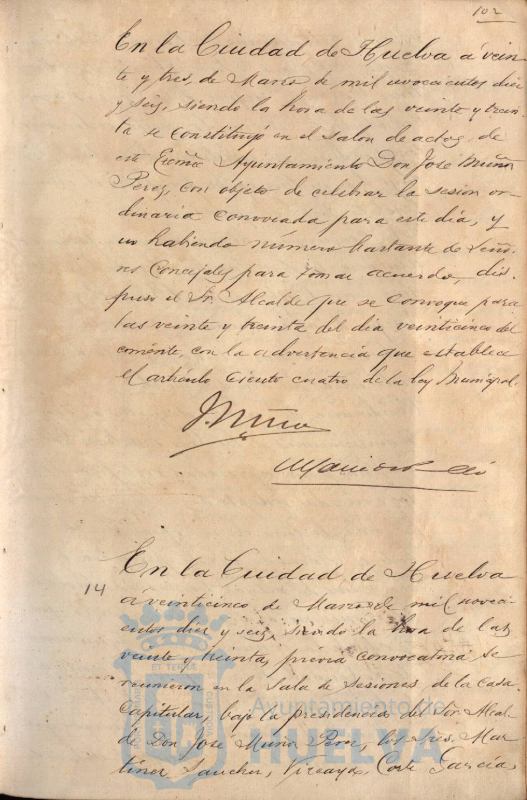 102
En la Ciudad de Huelva á vein-
te y tres, de Marzo de mil novecientos diez
y seis, siendo la hora de las veinte y trein-
ta se constituyó en el salon de actos de
este Excmo. Ayuntamiento Don José Muñoz
Perez, con objeto de celebrar la sesion or-
dinaria convocada para este dia, y
no habiendo número bastante de Seño-
res Concejales para tomar acuerdo, dis-
puso el Sr. Alcalde que se convoque para
las veinte y treinta del dia veinticinco del
corriente, con la advertencia que establece
el artículo ciento cuatro de la ley Municipal.
J. Muñoz
14
En la Ciudad de Huelva
á veinticinco de Marzo de mil noveci-
entos diez y seis, siendo la hora de las
veinte y treinta, prévia convocatoria se
reunieron en la Sala de sesiones de la Casa
Capitular, bajo la presidencia del Señor Alcal-
de Don José Muñoz Perez, los Sres. Mar-
tinez Sanchez, Vizcaya, Corte Garcia,
Ayuntamiento de
HUELVA